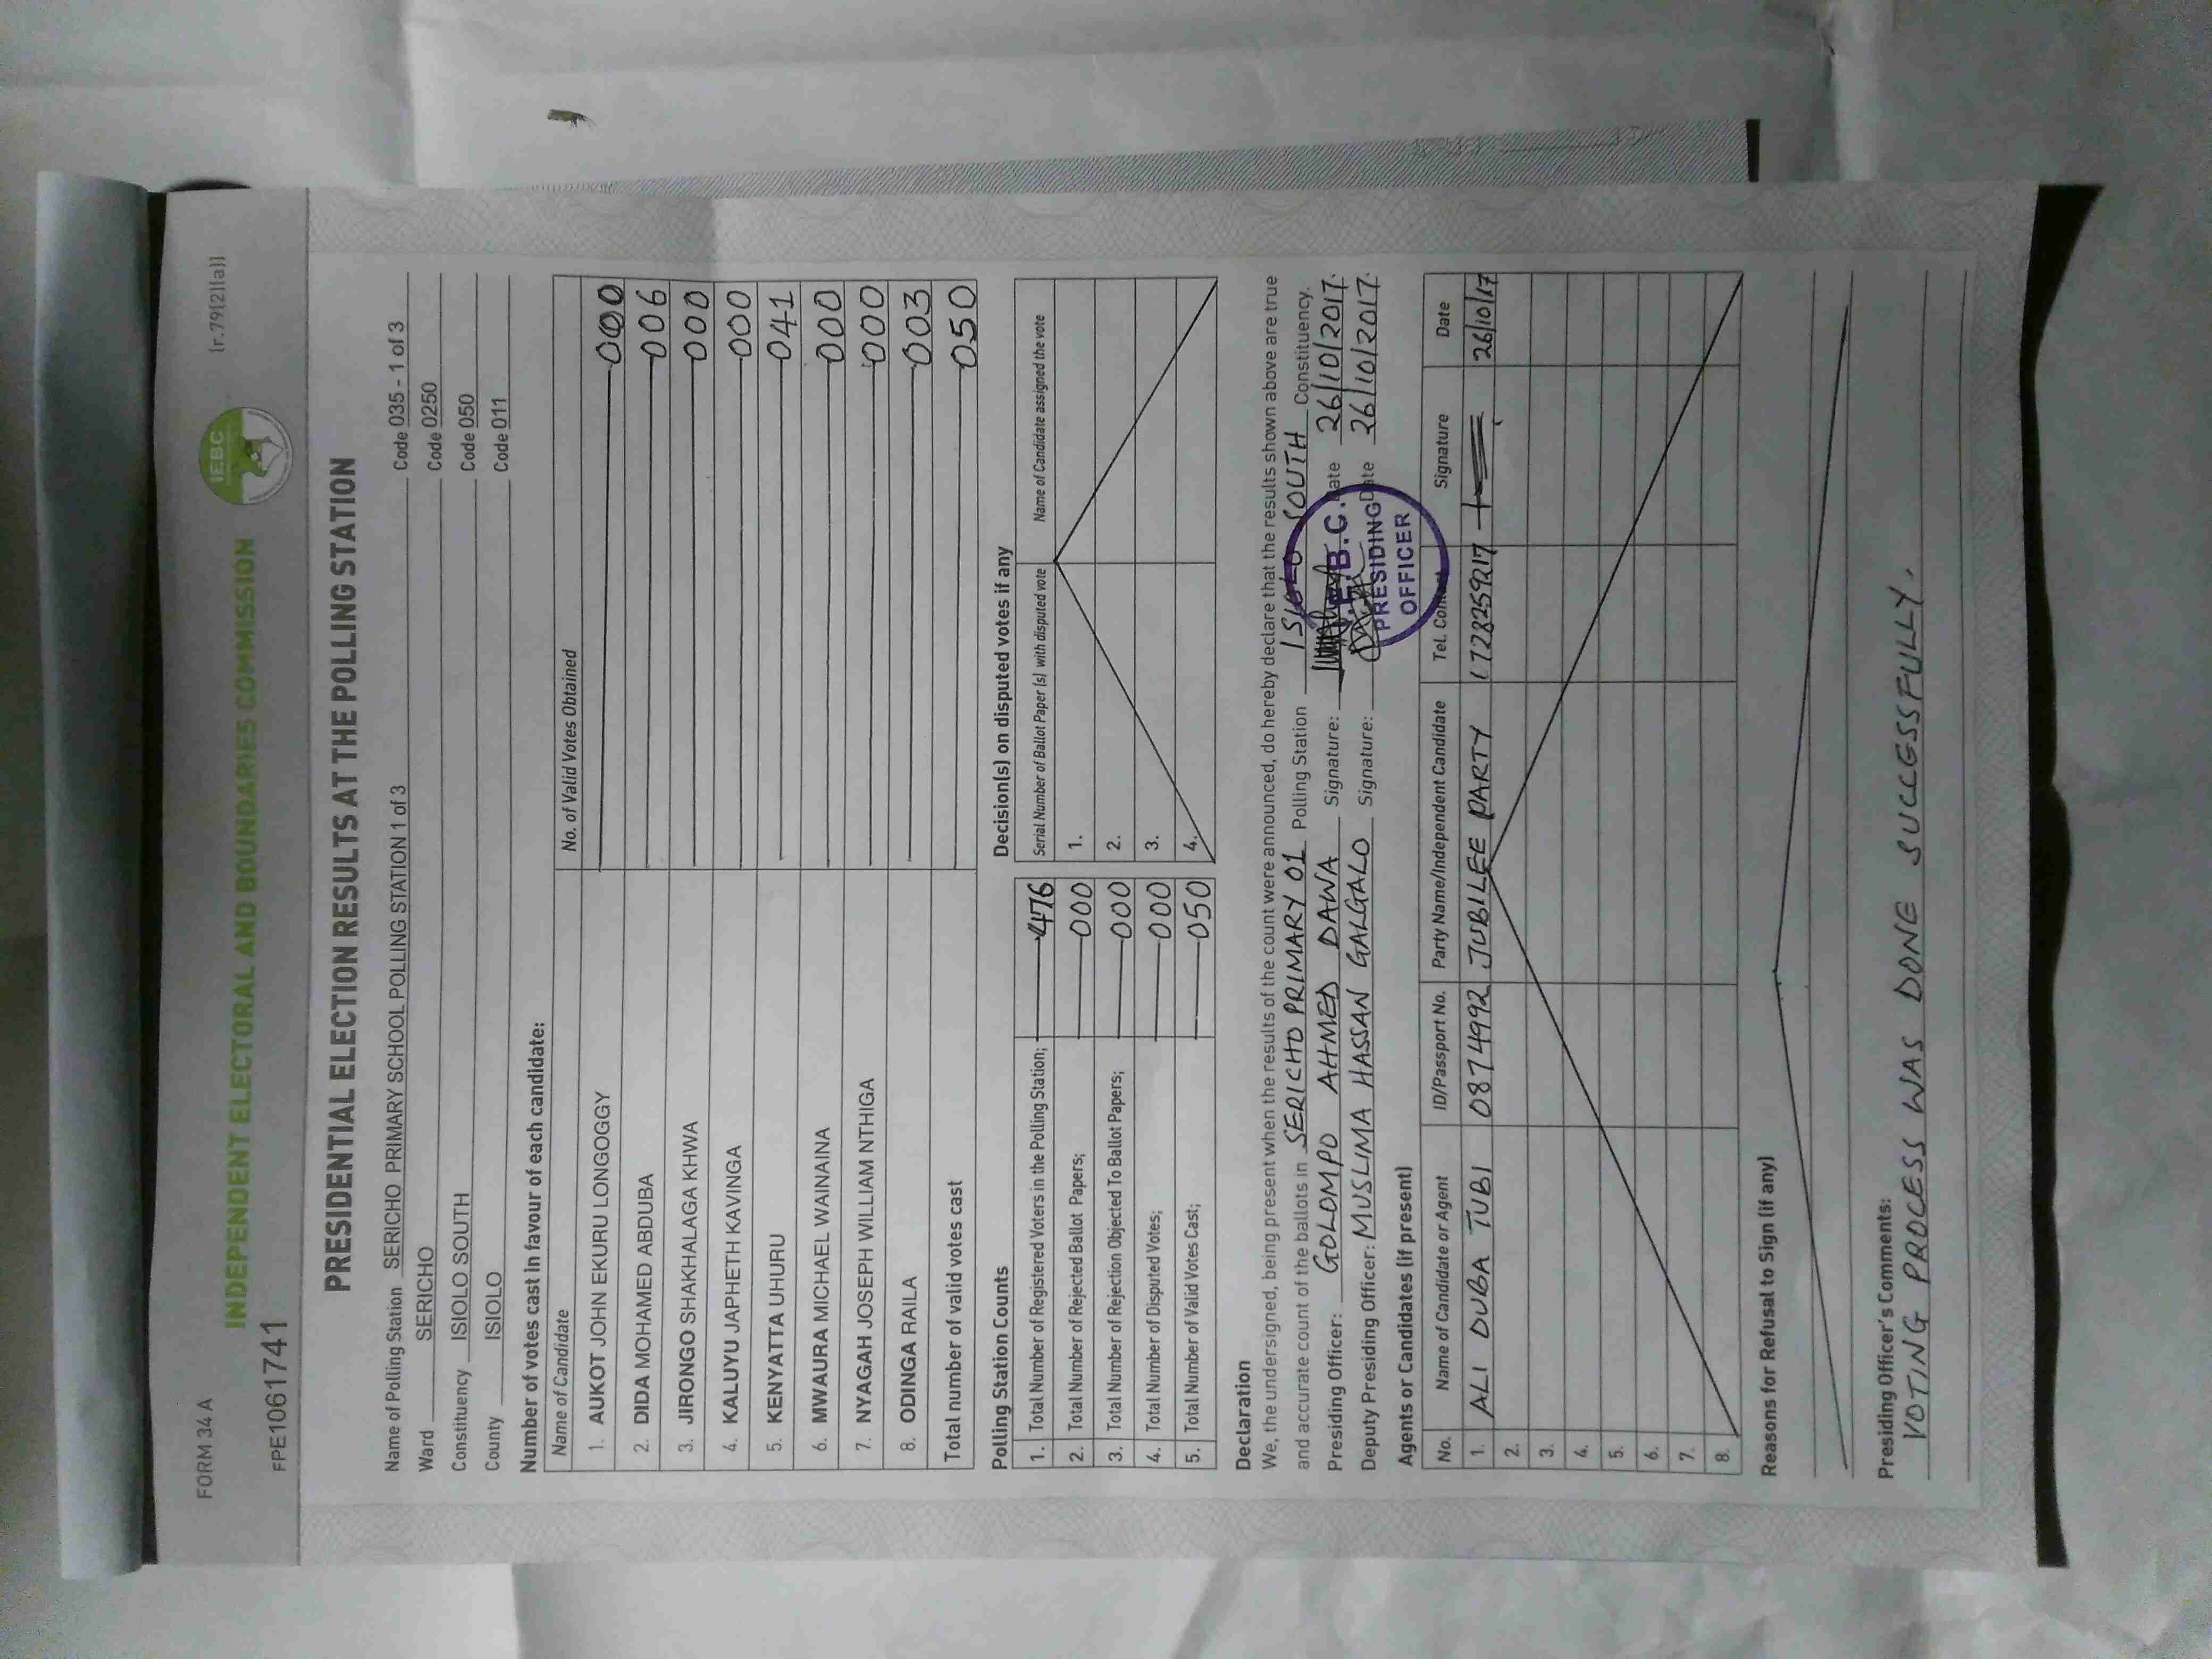 FORM 34 A
(r.79(2)(a))
INDEPENDENT ELECTORAL AND BOUNDARIES COMMISSION
IEBC
FPE1061741
PRESIDENTIAL ELECTION RESULTS AT THE POLLING STATION
Name of Polling Station SERICHO PRIMARY SCHOOL POLLING STATION 1 of 3 Code 035 - 1 of 3
Ward SERICHO Code 0250
Constituency ISIOLO SOUTH Code 050
County ISIOLO Code 011
Number of votes cast in favour of each candidate:
Name of Candidate No. of Valid Votes Obtained
1. AUKOT JOHN EKURU LONGOGGY 000
2. DIDA MOHAMED ABDUBA 006
3. JIRONGO SHAKHALAGA KHWA 000
4. KALUYU JAPHETH KAVINGA 000
5. KENYATTA UHURU 041
6. MWAURA MICHAEL WAINAINA 000
7. NYAGAH JOSEPH WILLIAM NTHIGA 000
8. ODINGA RAILA 003
Total number of valid votes cast 050
Polling Station Counts
1. Total Number of Registered Voters in the Polling Station; 476
2. Total Number of Rejected Ballot Papers; 000
3. Total Number of Rejection Objected To Ballot Papers; 000
4. Total Number of Disputed Votes; 000
5. Total Number of Valid Votes Cast; 050
Decision(s) on disputed votes if any
Serial Number of Ballot Paper (s) with disputed vote Name of Candidate assigned the vote
1.
2.
3.
4.
Declaration
We, the undersigned, being present when the results of the count were announced, do hereby declare that the results shown above are true
and accurate count of the ballots in SERICHO PRIMARY 01 Polling Station ISIOLO SOUTH Constituency.
Presiding Officer: GOLOMPO AHMED DAWA Signature: Date 26/10/2017.
Deputy Presiding Officer: MUSLIMA HASSAN GALGALO Signature: Date 26/10/2017.
I.E.B.C.
PRESIDING
OFFICER
Agents or Candidates (if present)
No. Name of Candidate or Agent ID/Passport No. Party Name/Independent Candidate Tel. Contact Signature Date
1. ALI DUBA TUBI 08714992 JUBILEE PARTY 0728259217 26/10/17
2.
3.
4.
5.
6.
7.
8.
Reasons for Refusal to Sign (if any)
Presiding Officer's Comments:
VOTING PROCESS WAS DONE SUCCESSFULLY.